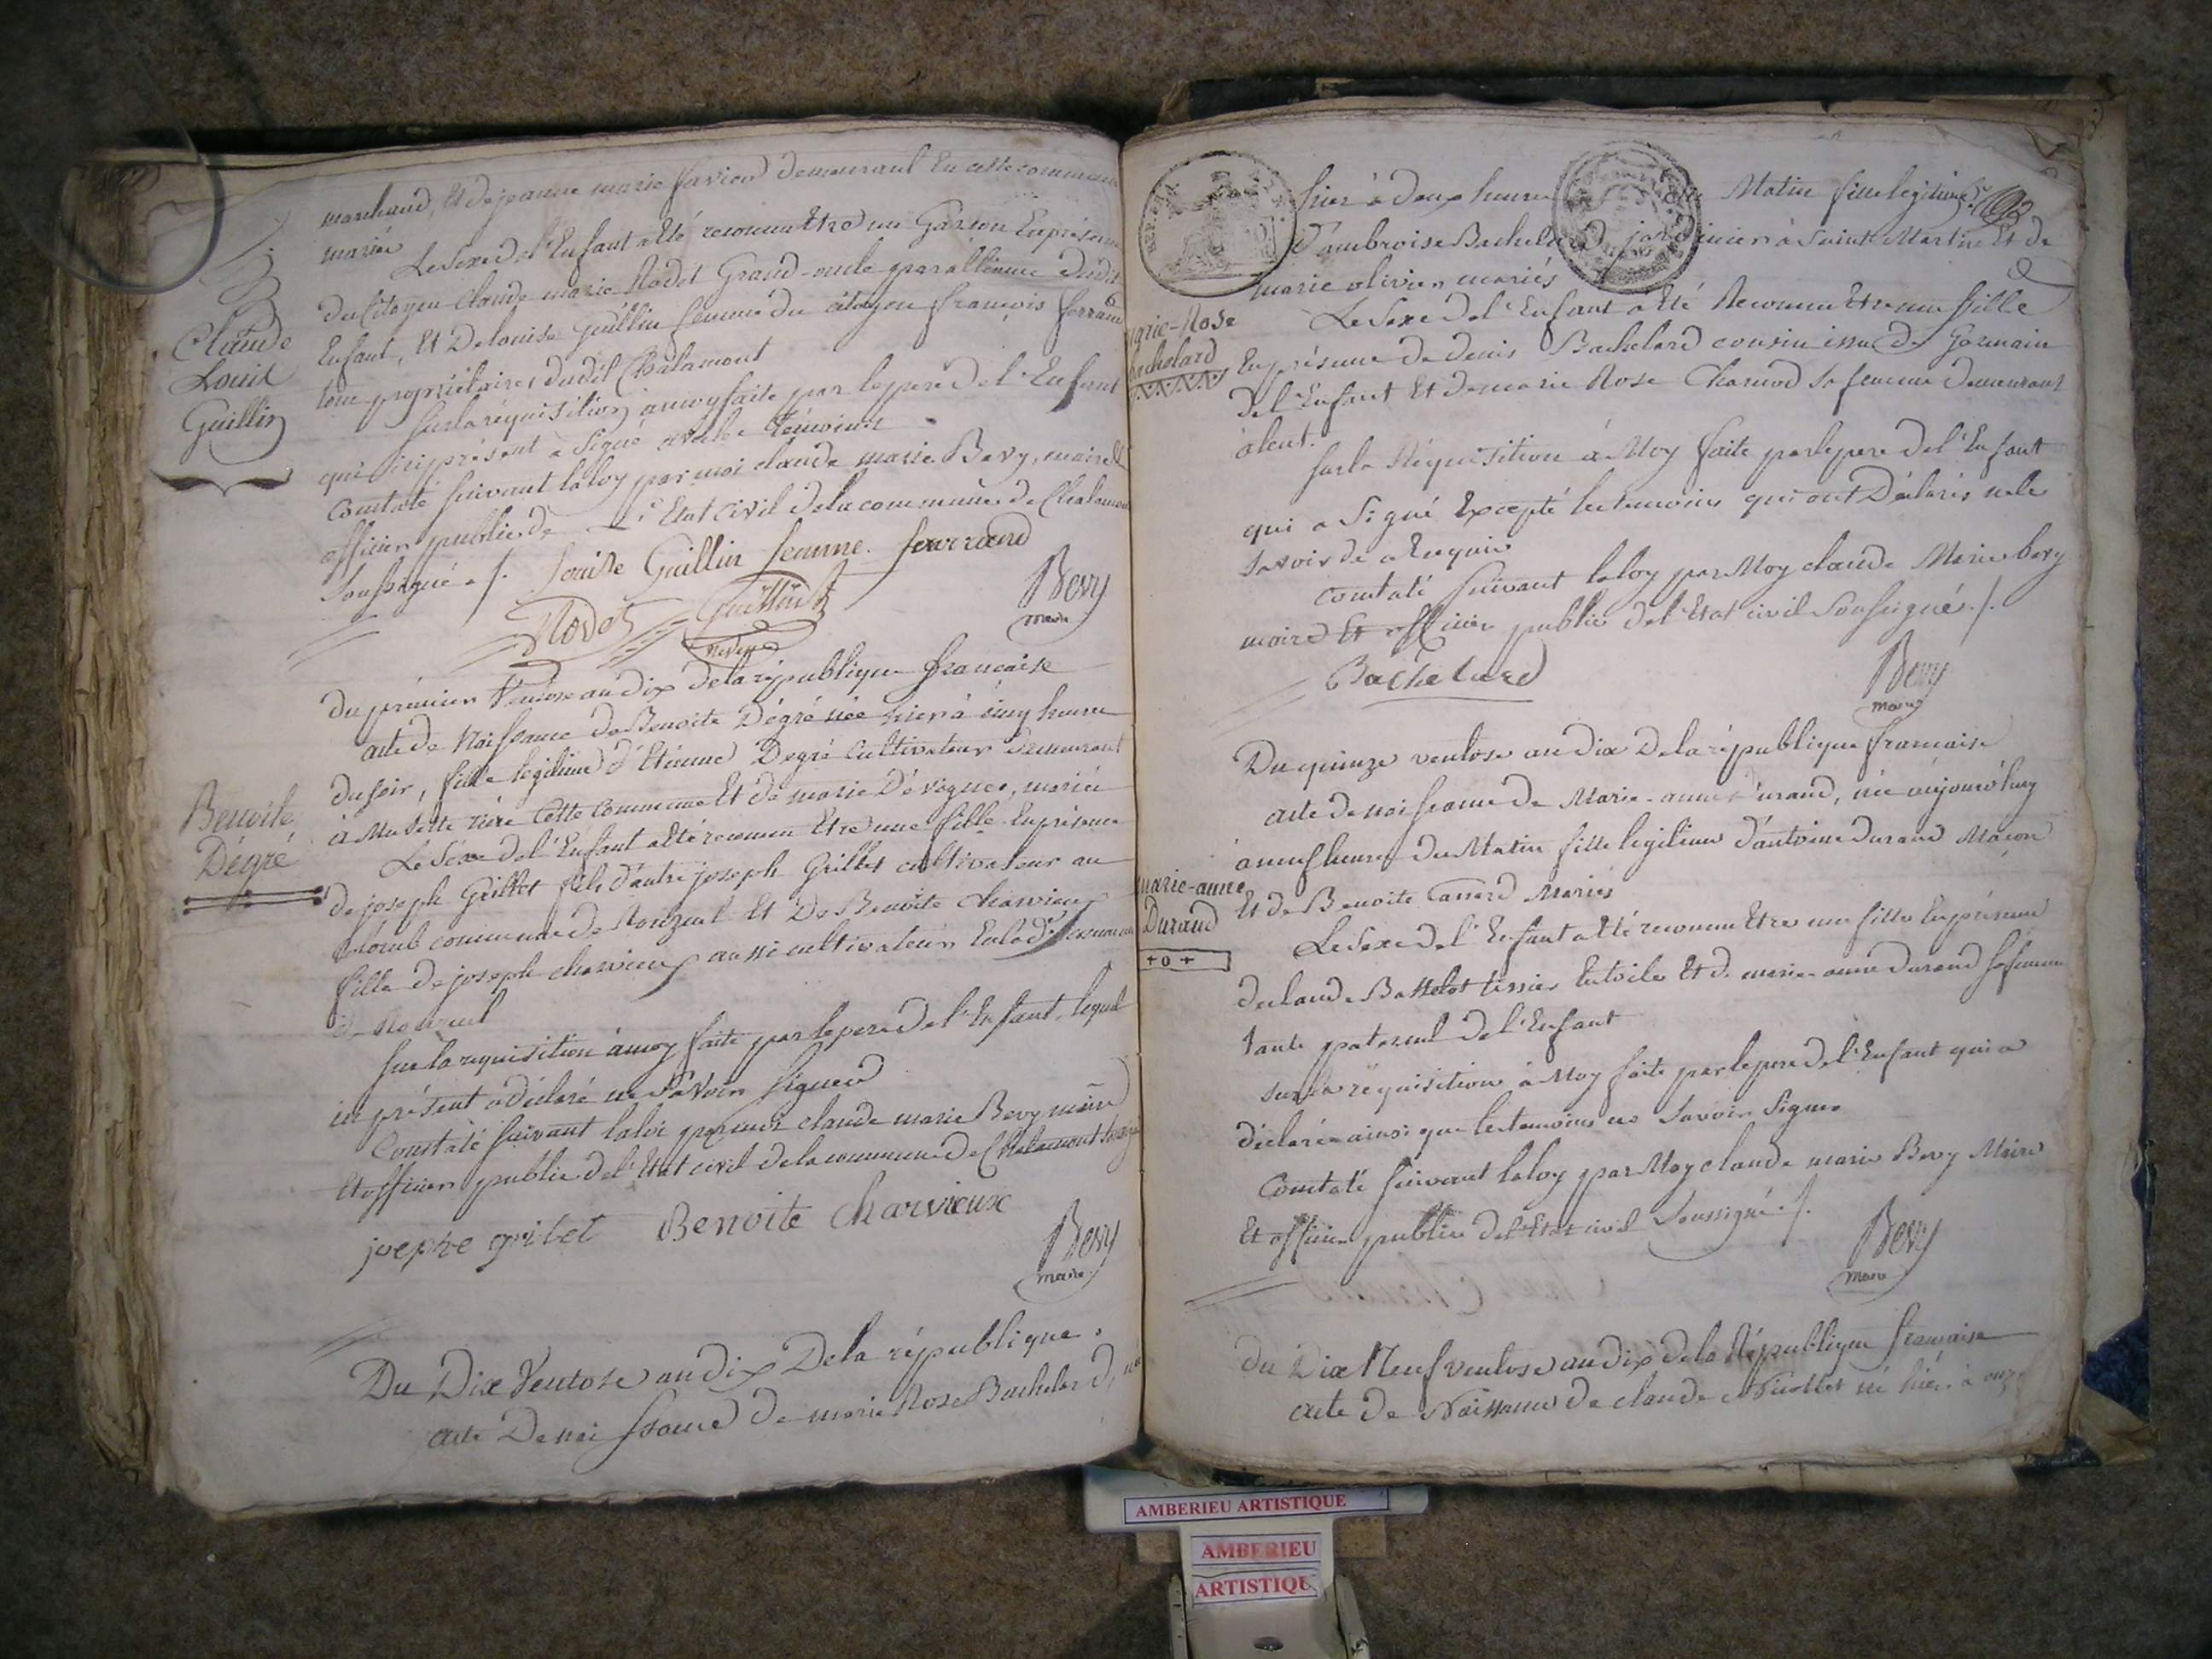 marchand, et de jeanne marie savien demeurant en cette commune
mariés
Le Sexe de l'Enfant a été reconnu Etre un Garson En présence
du Citoyen Claude marie Rodet Grand-oncle dudit
Enfant, Et De louise Guillin femme du citoyen françois ferrand
tous propriétaires dudit Chalamont
Sur la réquisition à moy faite par le pere de l'Enfant
qui ici présent a Signé avec les témoins
Constaté suivant la loy par moi claude marie Bevy, maire Et
officier public de l'Etat civil de la commune de Chalamont
Soussigné ./.
Louise Guillin femme ferrand
Rodet Guillin
Bevy
maire
Claude
Louis
Guillin
du premier Ventose an dix de la république française
acte de Naissance de Benoite Dégré née hier à cinq heures
du soir, fille legitime d'Etienne Degré Cultivateur demeurant
à rière Cette Commune Et de marie Dévignes, mariés
Le Sexe de l'Enfant a été reconnu Etre une fille En présence
de joseph Grillet fils d'autre joseph Grillet cultivateur au
commune de Ronzuel Et De Benoite Charvieux
fille de joseph charvieux aussi cultivateur En lad. commune
de Ronzuel
Sur la requisition à moy faite par le pere de l'Enfant, lequel
ici présent a déclaré ne Savoir Signer
Constaté suivant la loi par moi claude marie Bevy maire
Et officier public de l'Etat civil de la commune de Chalamont
joephe grilet Benoite Charvieux
Bevy
maire
Benoite
Dégré
Du Dix Ventose an dix De la république
acte De naissance de marie Rose Bachelard, née
hier à deux heures du Matin fille legitime
D'ambroise Bachelard jardinier à Saint Martin Et de
marie olivier mariés
Le Sexe de l'Enfant a Eté Reconnu Etre une fille
En présence de denis Bachelard cousin issu de Germain
de l'Enfant Et de marie Rose Charvod Sa femme demeurant
Sur la Réquisition à Moy faite par le pere de l'Enfant
qui a Signé Excepté les temoins qui ont Déclarés ne le
Savoir de a Enquis
Constaté suivant la loy par Moy claude Marie bevy
maire Et officier public de l'Etat civil Soussigné ./.
Bachelard
Bevy
maire
marie-Rose
bachelard
Du quinze ventose an dix De la république française
acte de naissance de Marie-anne Durand, née aujourd'huy
à neuf heures du Matin fille legitime d'antoine Durand Maçon
Et de Benoite Canard Mariés
Le Sexe de l'Enfant a été reconnu Etre une fille En présence
de claude Battelot tissier En toile Et de marie-anne Durand Sa femme
tante paternel de l'Enfant
Sur la réquisition à Moy faite par le pere de l'Enfant qui a
déclaré ainsi que les temoins ne Savoir Signer
Constaté suivant la loy par Moy claude marie Bevy Maire
Et officier public de l'Etat civil Soussigné ./.
Bevy
maire
marie-anne
Durand
+o+
du Dix Neuf ventose an dix de la République française
acte de Naissance de claude né hier à onze
AMBERIEU ARTISTIQUE
AMBERIEU
ARTISTIQUE